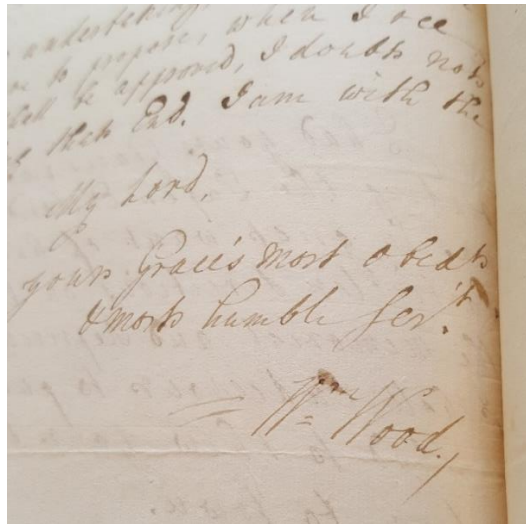 undertaking
to propose, when I see
be approved, I doubt not
that End. I am with the
My Lord,
your Grace's most obedt
& most humble Servt.
Wm Wood,